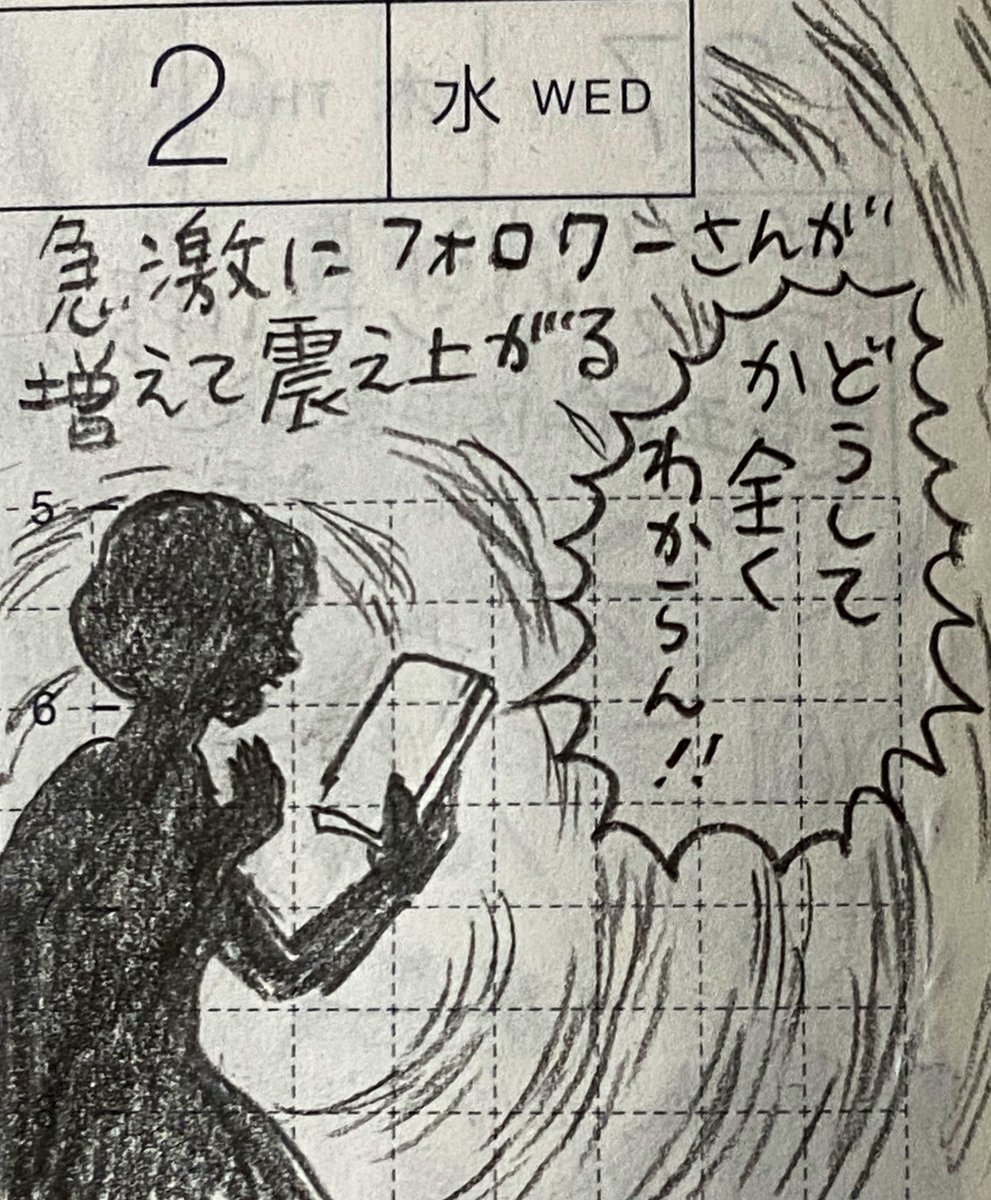 2
水 WED
急激にフォロワーさんが
増えて震え上がる
どうして
か全く
わからん!!
5
6
7